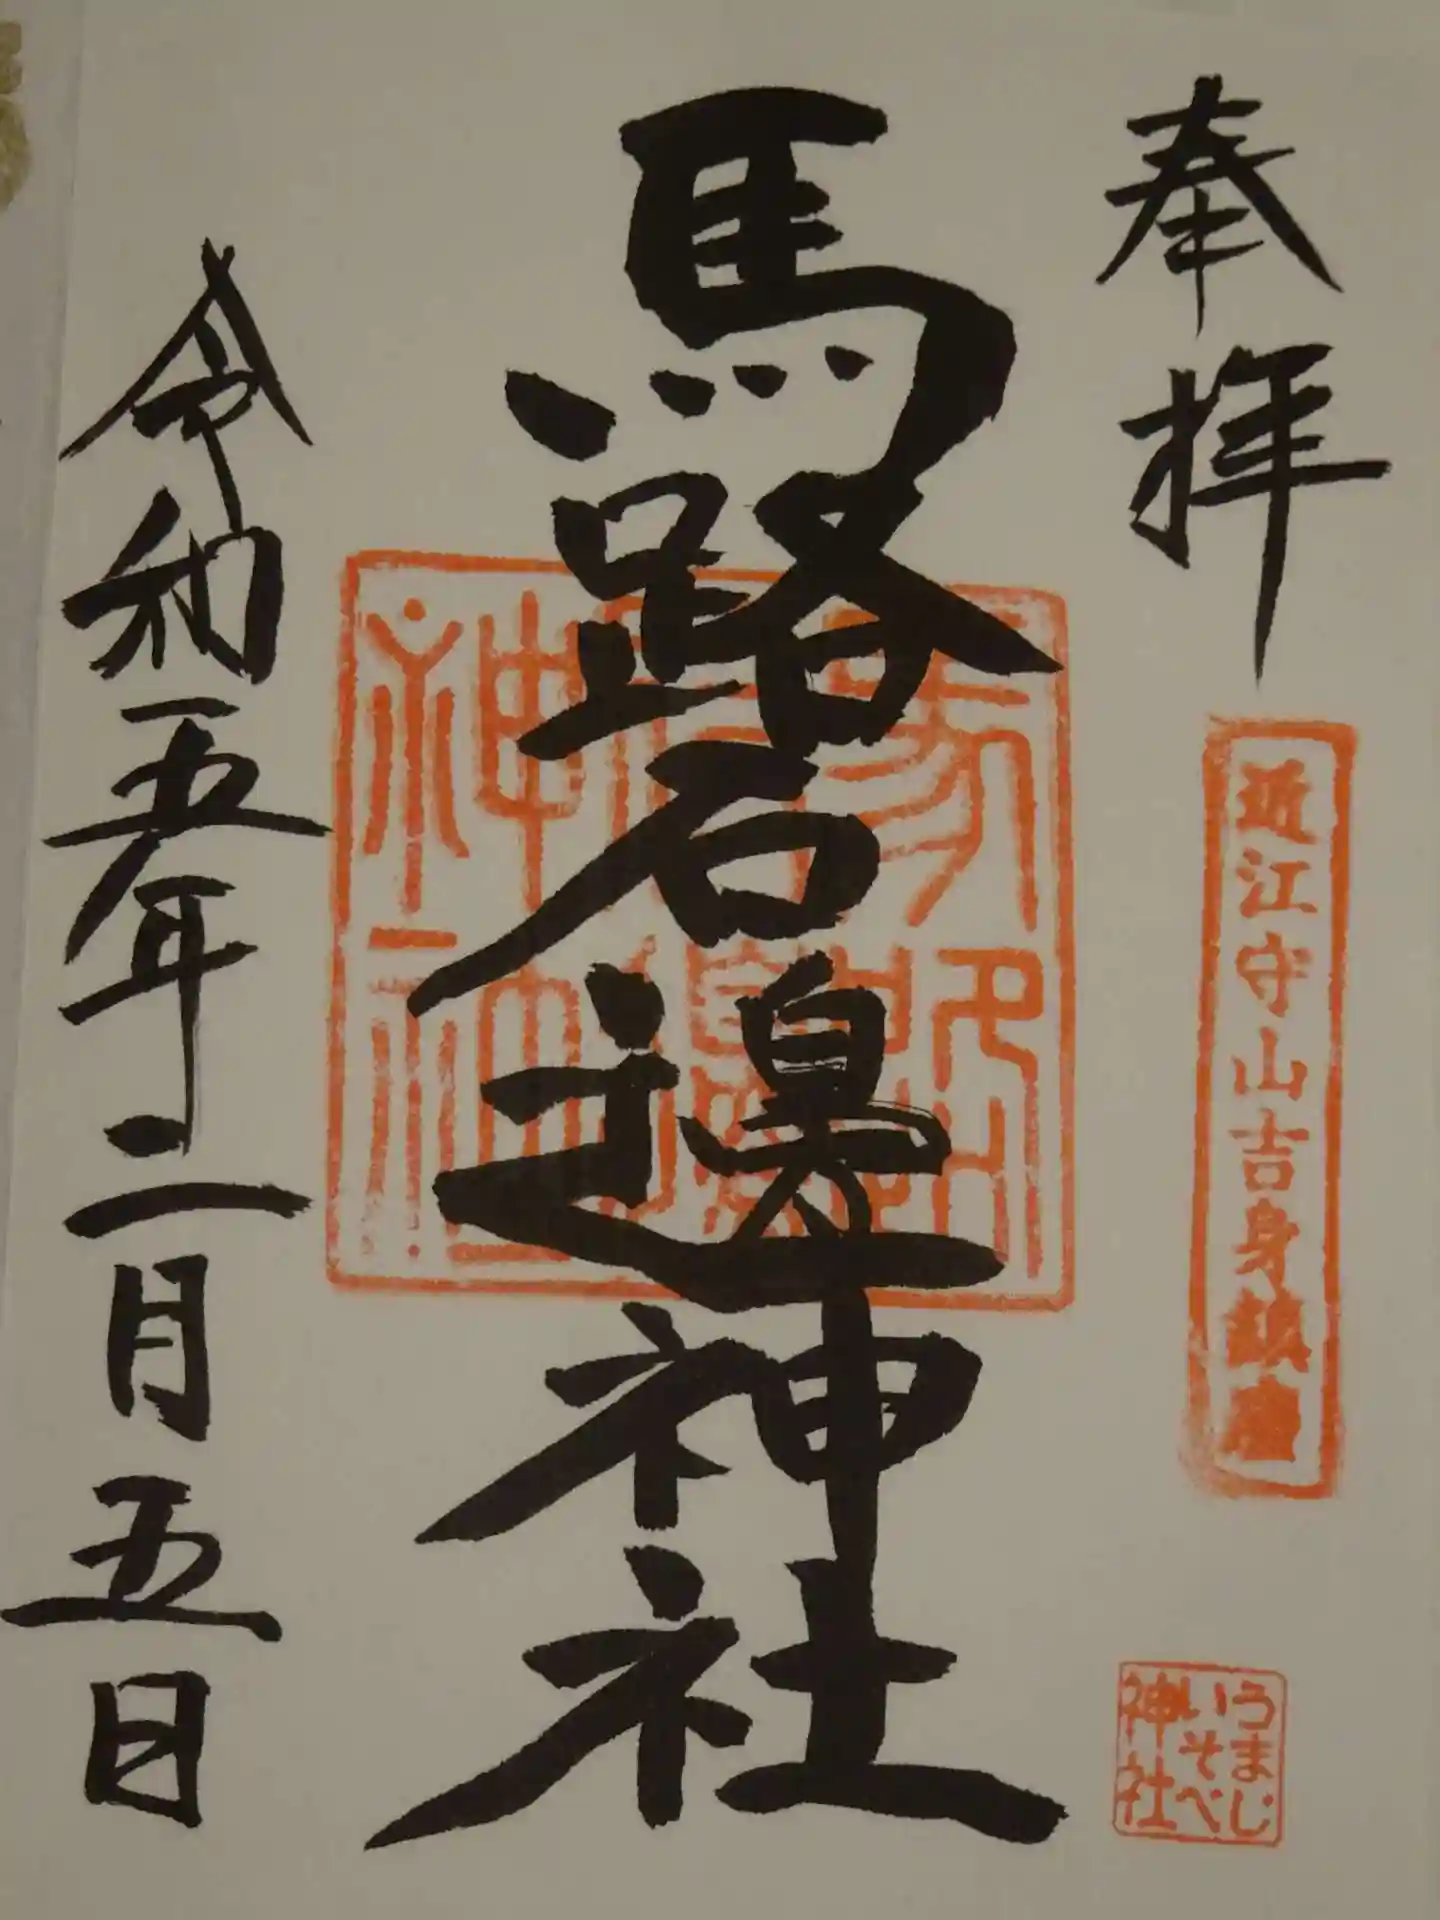 奉拝
近江守山吉身鎮座
うまじ
いそべ
神社
馬路石邊神社
令和五年二月五日